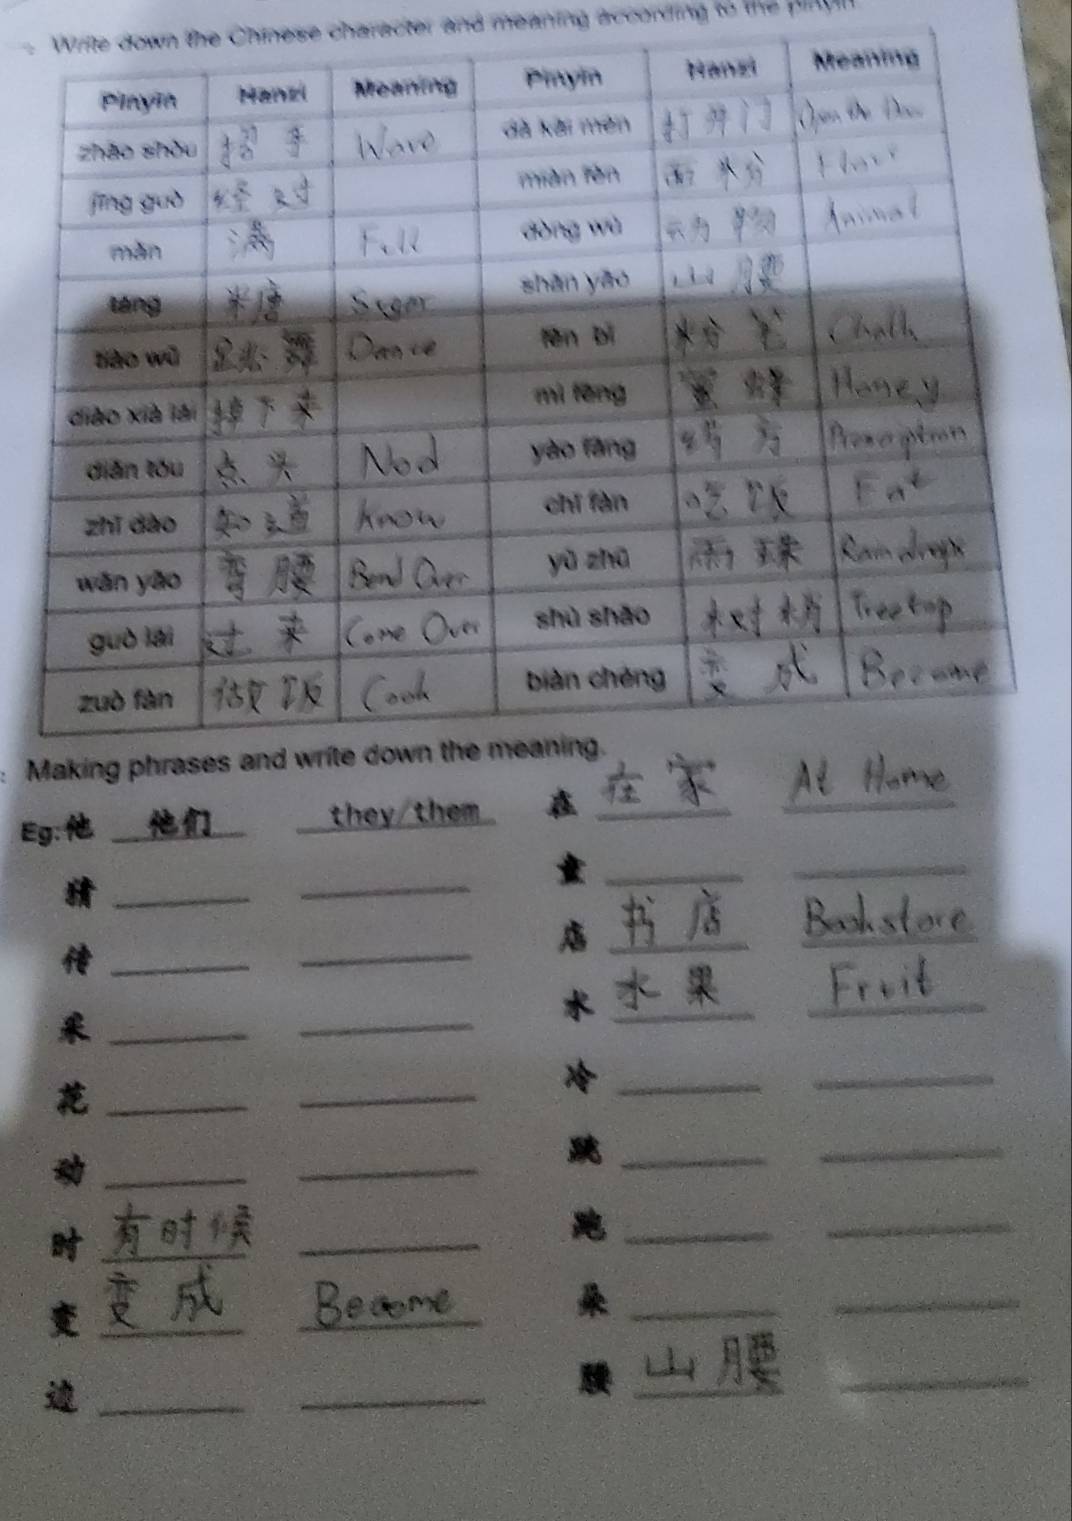 Write down the Chinese character and meaning according to the pinyin
Pinyin Hanzi Meaning Pinyin Hanzi Meaning
zhāo shǒu 招手 Wave dǎ kāi mén 打开门 Open the Door
jīng guò 经过 miàn fěn 面粉 Flour
mǎn 满 Full dòng wù 动物 Animal
táng 糖 Suger shān yāo 山腰
tiào wǔ 跳舞 Dance fěn bǐ 粉笔 Chalk
diào xià lái 掉下来 mì fēng 蜜蜂 Honey
diǎn tóu 点头 Nod yào fāng 药方 Prescription
zhī dào 知道 Know chī fàn 吃饭 Eat
wān yāo 弯腰 Bend Over yǔ zhū 雨珠 Raindrops
guò lái 过来 Come Over shù shāo 树梢 Treetop
zuò fàn 做饭 Cook biàn chéng 变成 Become
Making phrases and write down the meaning.
Eg: 他 他们 they/them 在 在家 At Home
猜 童
传 店 书店 Bookstore
采 水 水果 Fruit
花 冷
动 跳
时 有时候 跑
变 变成 Become 朵
边 腰 山腰